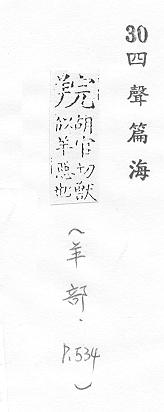 30四聲篇海
羦
胡官切獸
似羊惡也
(羊部.P.534)